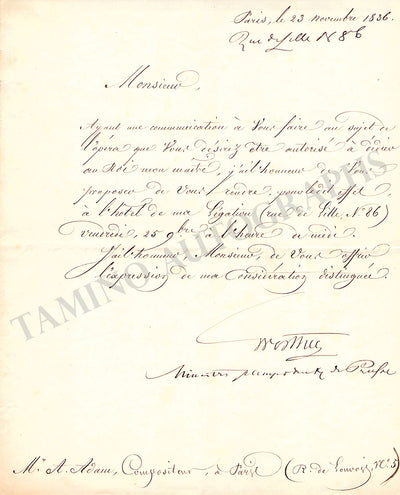 Paris, le 23 novembre 1836.
Rue de Lille N 86
Monsieur,
Ayant une communication à Vous faire au sujet de
l'opéra que Vous désirez être autorisé à dédier
au Roi mon maître, j'ai l'honneur de Vous
proposer de Vous rendre, pour cet effet
à l'hôtel de ma Légation (rue de Lille N° 86)
Vendredi, 25 9bre à l'heure de midi.
J'ai l'honneur, Monsieur, de Vous offrir
l'expression de ma considération distinguée.
Ministre de Prusse
Mr A. Adam, Compositeur, à Paris (R. de Louvois N° 5)
TAMINO AUTOGRAPHS